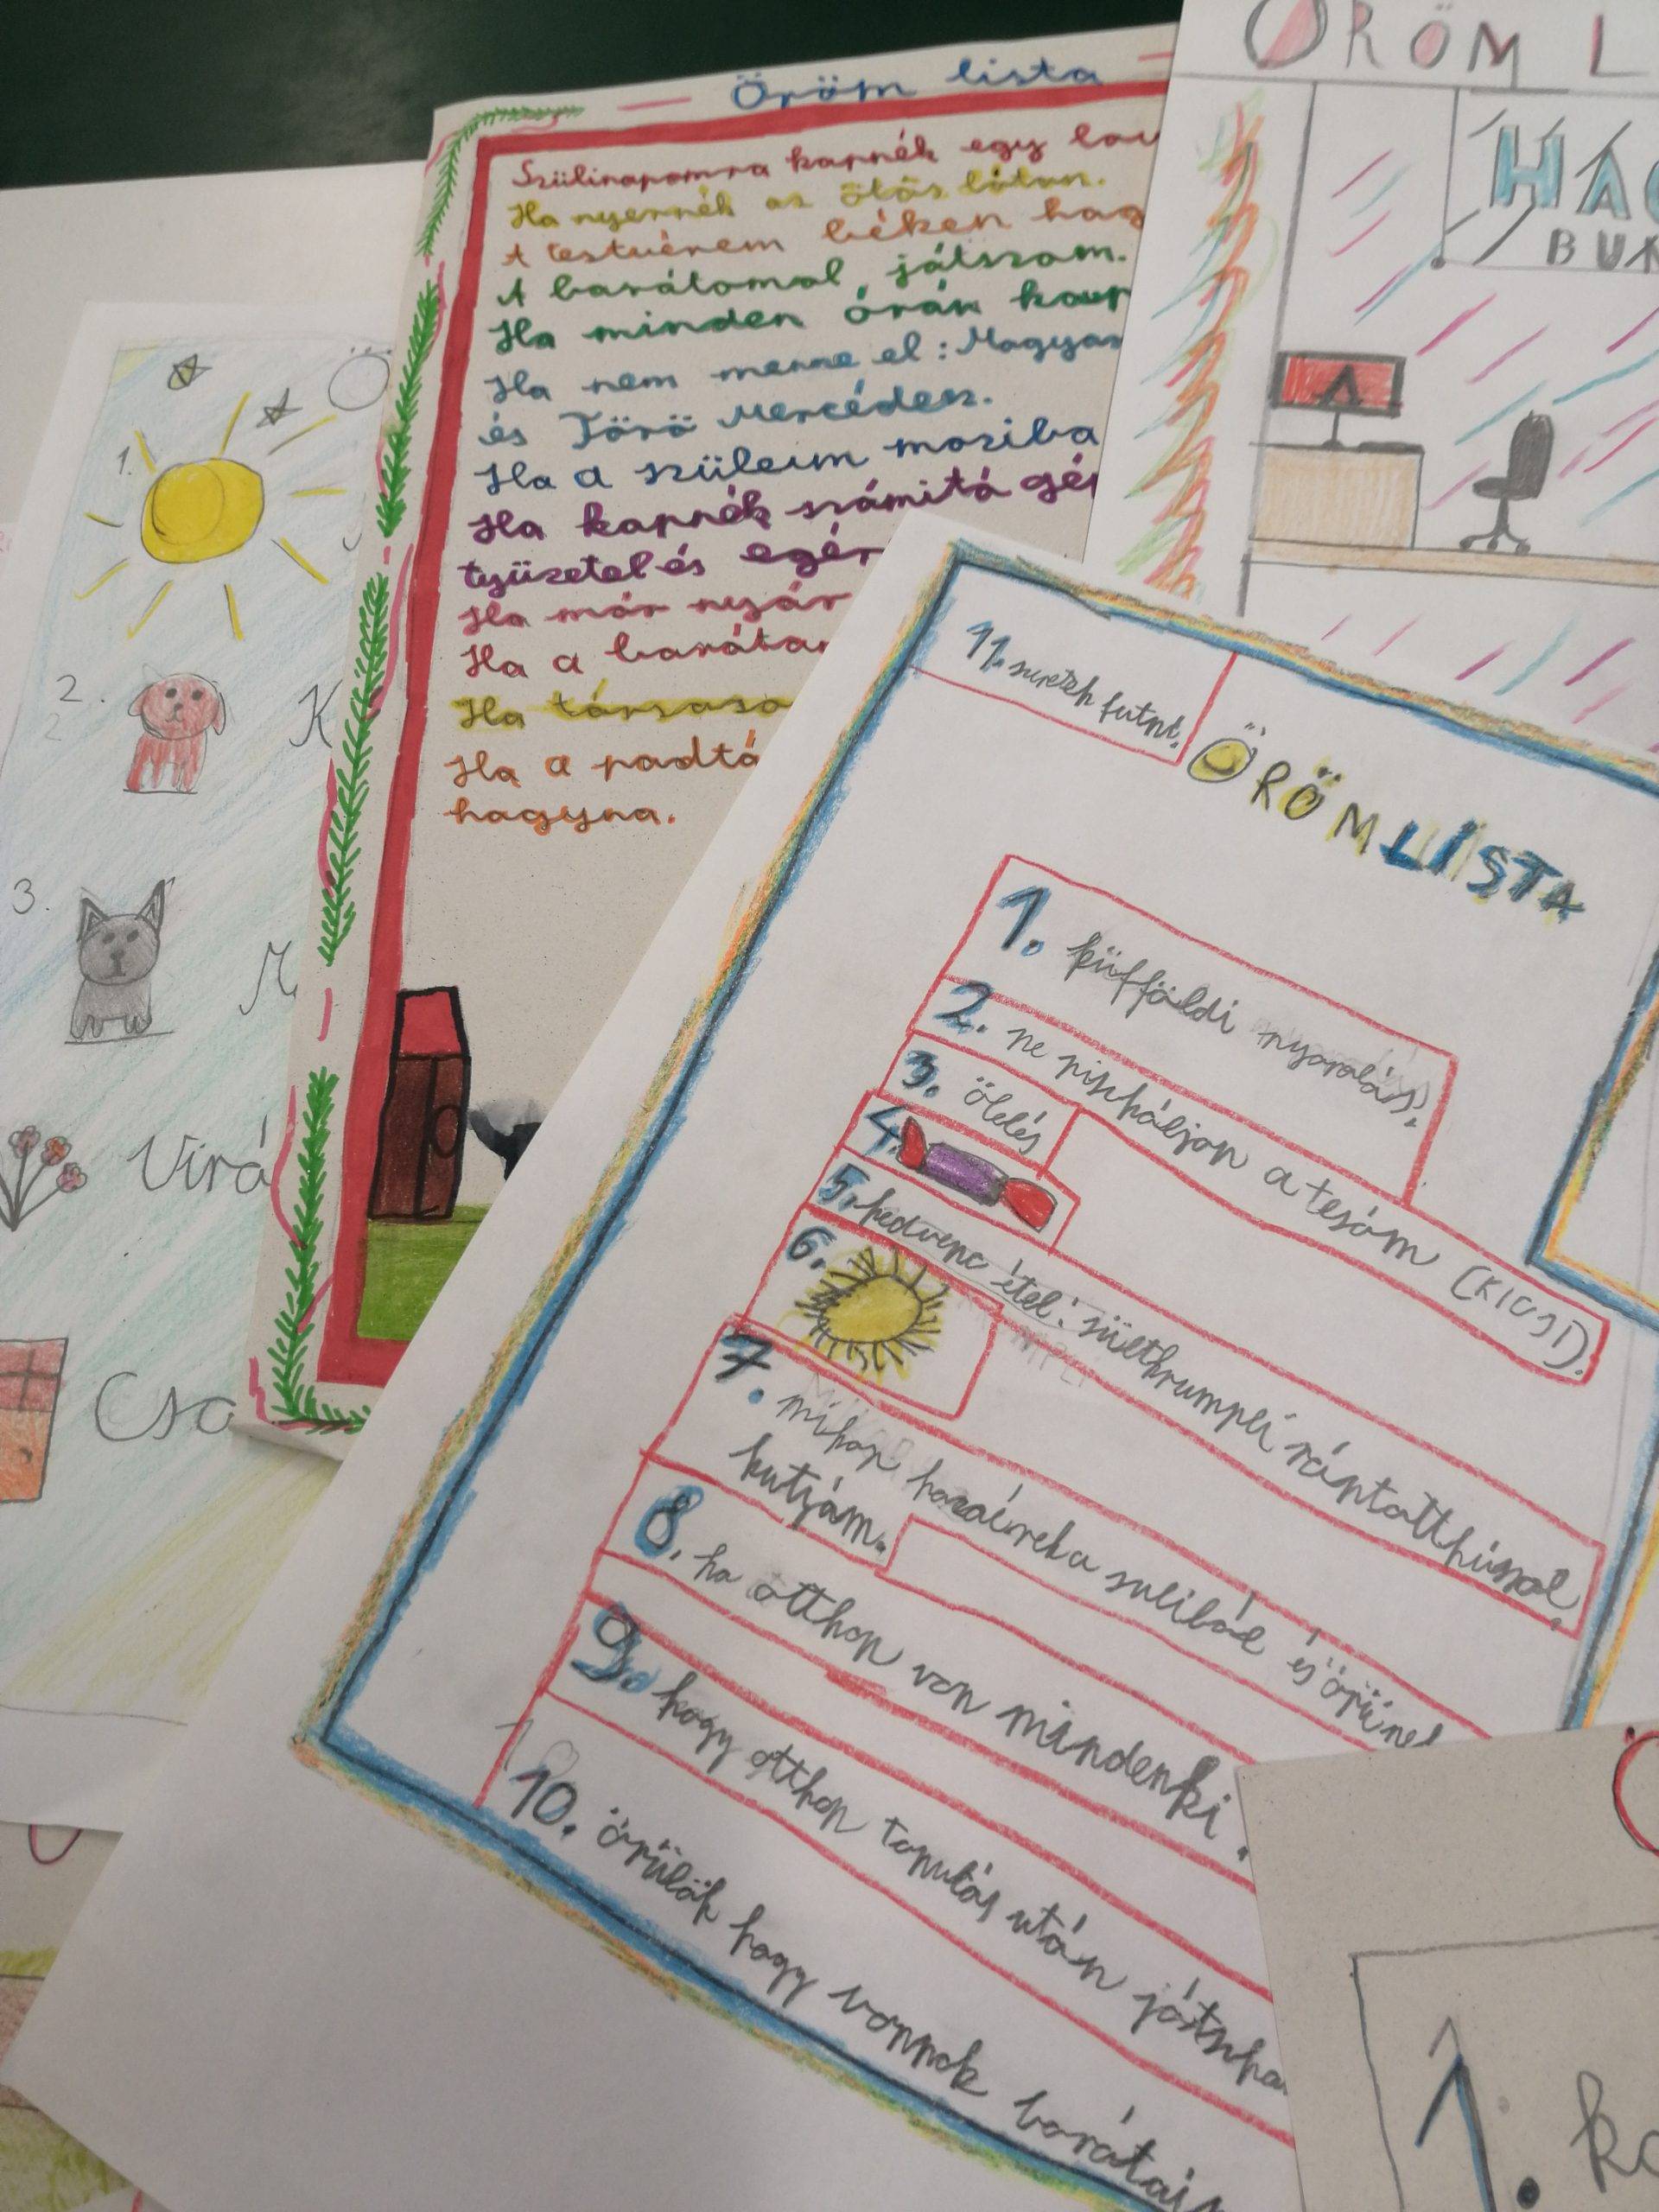 Öröm lista
Szülinapomra kapnék egy
Ha nyernék az ötös lótun.
A testvérem béken hag
A barátomal játszom.
Ha minden órán kap
Ha nem menne el: Magyar
és Törö Mercédesz.
Ha a szüleim moziba
Ha kapnék számitó gép
tyüzetel és egér
Ha már nyár
Ha a baráta
Ha társaso
Ha a padtá
hagyna.
ÖRÖM L
HAC
BUK
1.
2. K
3. M
Virá
Csa
11. szeretek futni.
ÖRÖMLISTA
1. küfföldi nyaralás.
2. ne piszkáljon a tesóm (KICSI).
3. ölelés
4.
5. kedvenc étel: sültkrumpli rántotthússal.
6.
7. mikor hazaérek a suliból és örül nel
kutyám.
8. ha otthon van mindenki.
9. hogy otthon tanulás után játszha
10. örülök hogy vannak barátai
1. ko